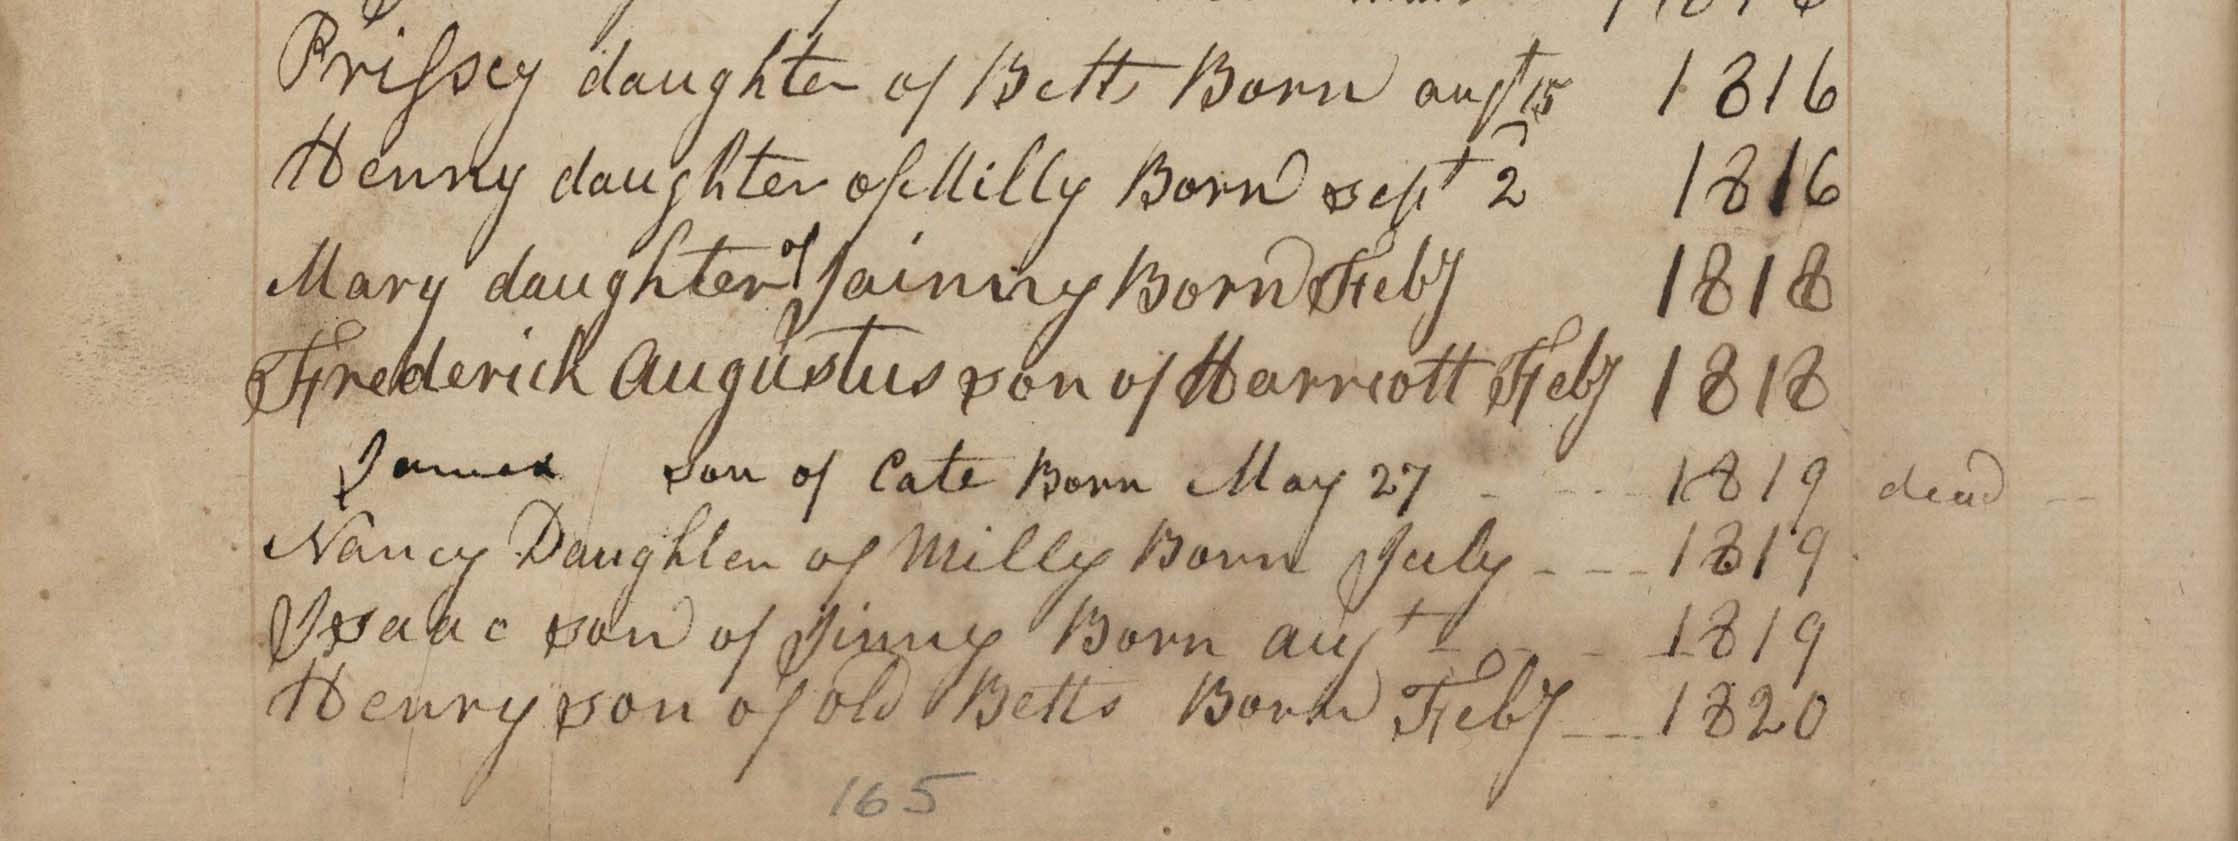 Prissey daughter of Betts Born augt 15 1816
Henny daughter of Milly Born sept 2 1816
Mary daughter of Jainny Born Feby 1818
Frederick Augustus son of Harriott Feby 1818
James son of Cate Born May 27 - - - - 1819 dead - -
Nancy Daughter of Milly Born July - - - 1819
Isaac son of Jinny Born augt - - - - 1819
Henry son of old Betts Born Feby - - 1820
165